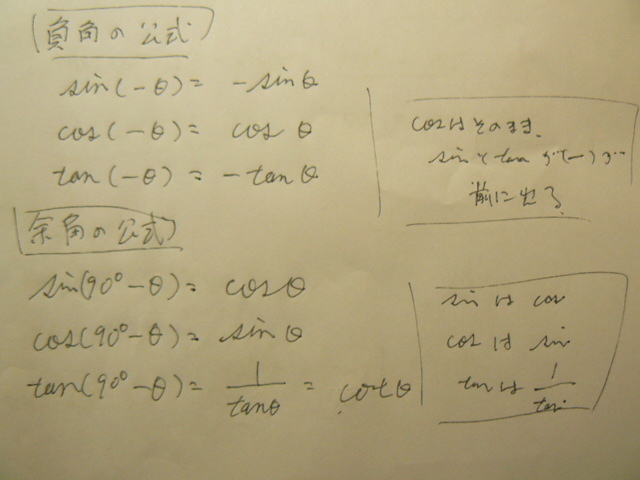 負角の公式
sin(-θ)= -sinθ
cos(-θ)= cosθ
tan(-θ)= -tanθ
cosはそのまま、
sinとtanが(-)が
前に出る
余角の公式
sin(90°-θ)= cosθ
cos(90°-θ)= sinθ
tan(90°-θ)= 1/tanθ = cotθ
sinはcos
cosはsin
tanは 1/tan